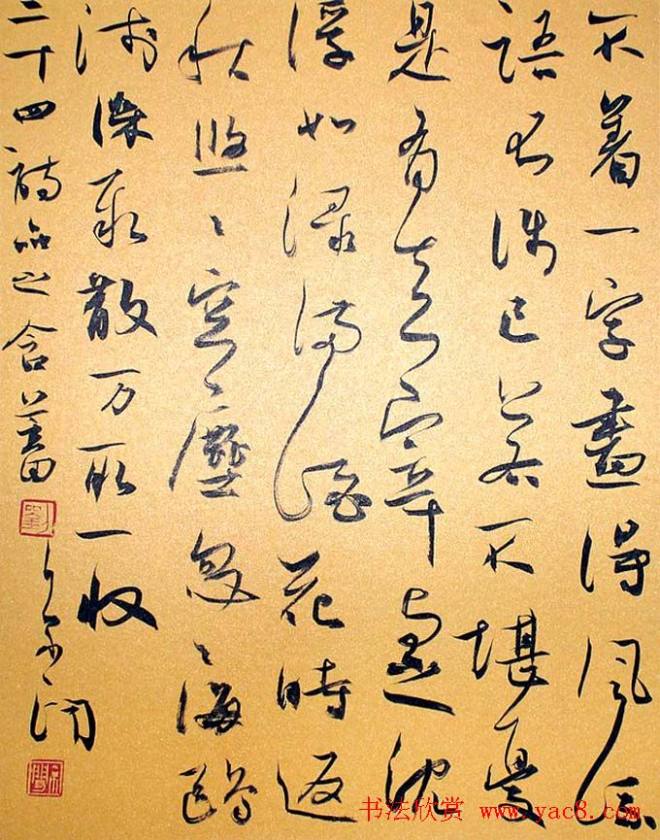 不着一字盡得風流
語不涉已若不堪憂
是有真宰與之沈
浮如淥滿酒花時返
秋悠〻空〻塵忽〻海鷗
淺深聚散万取一收
二十四詩品之含蓄
书法欣赏 www.yac8.com